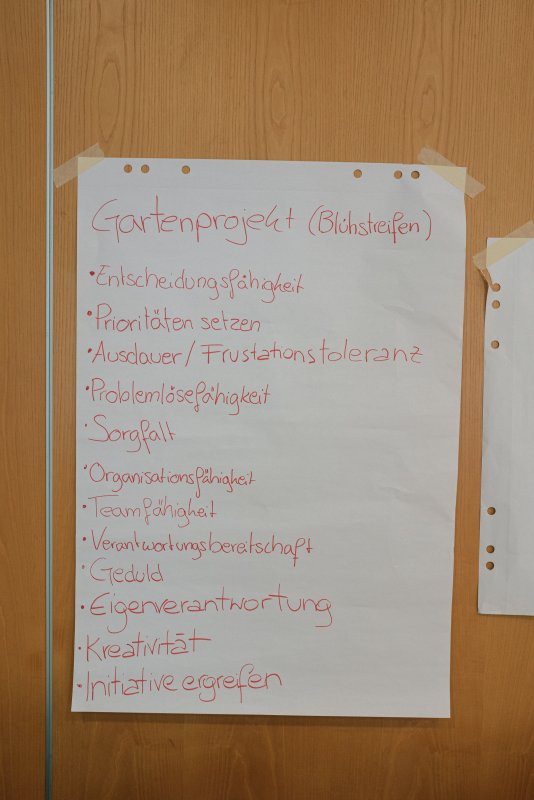 Gartenprojekt (Blühstreifen)
• Entscheidungsfähigkeit
• Prioritäten setzen
• Ausdauer/Frustationstoleranz
• Problemlösefähigkeit
• Sorgfalt
• Organisationsfähigkeit
• Teamfähigkeit
• Verantwortungsbereitschaft
• Geduld
• Eigenverantwortung
• Kreativität
• Initiative ergreifen